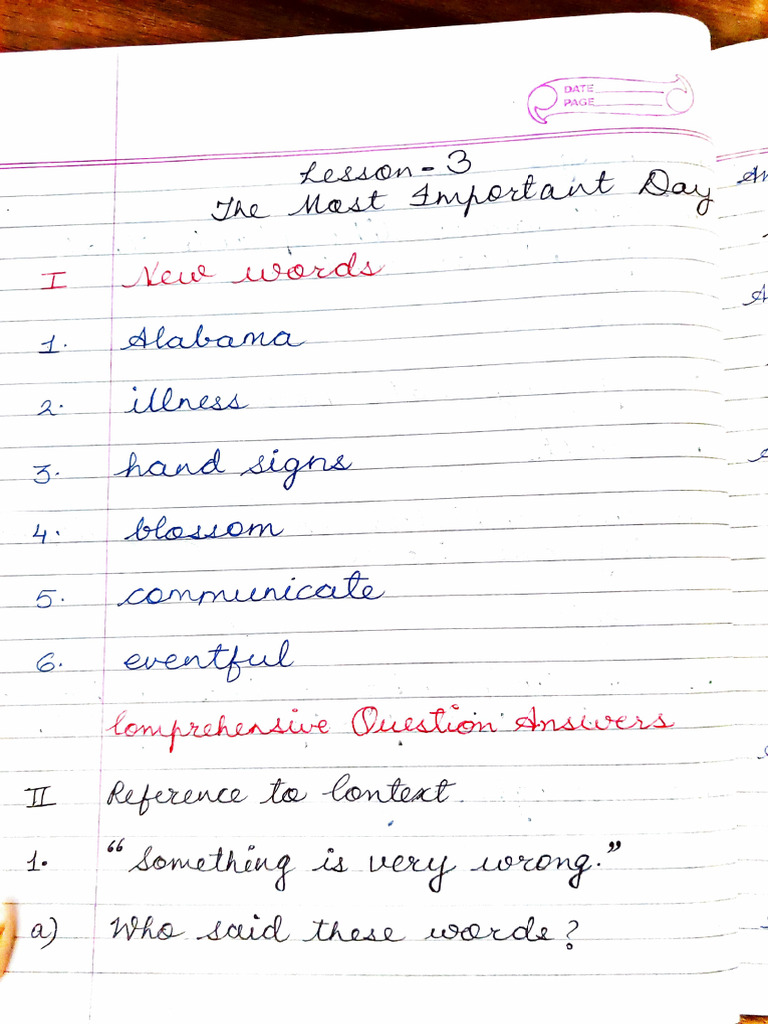 DATE
PAGE
Lesson - 3
The Most Important Day
I New words
1. Alabama
2. illness
3. hand signs
4. blossom
5. communicate
6. eventful
Comprehensive Question Answers
II Reference to Context.
1. "Something is very wrong."
a) Who said these words?